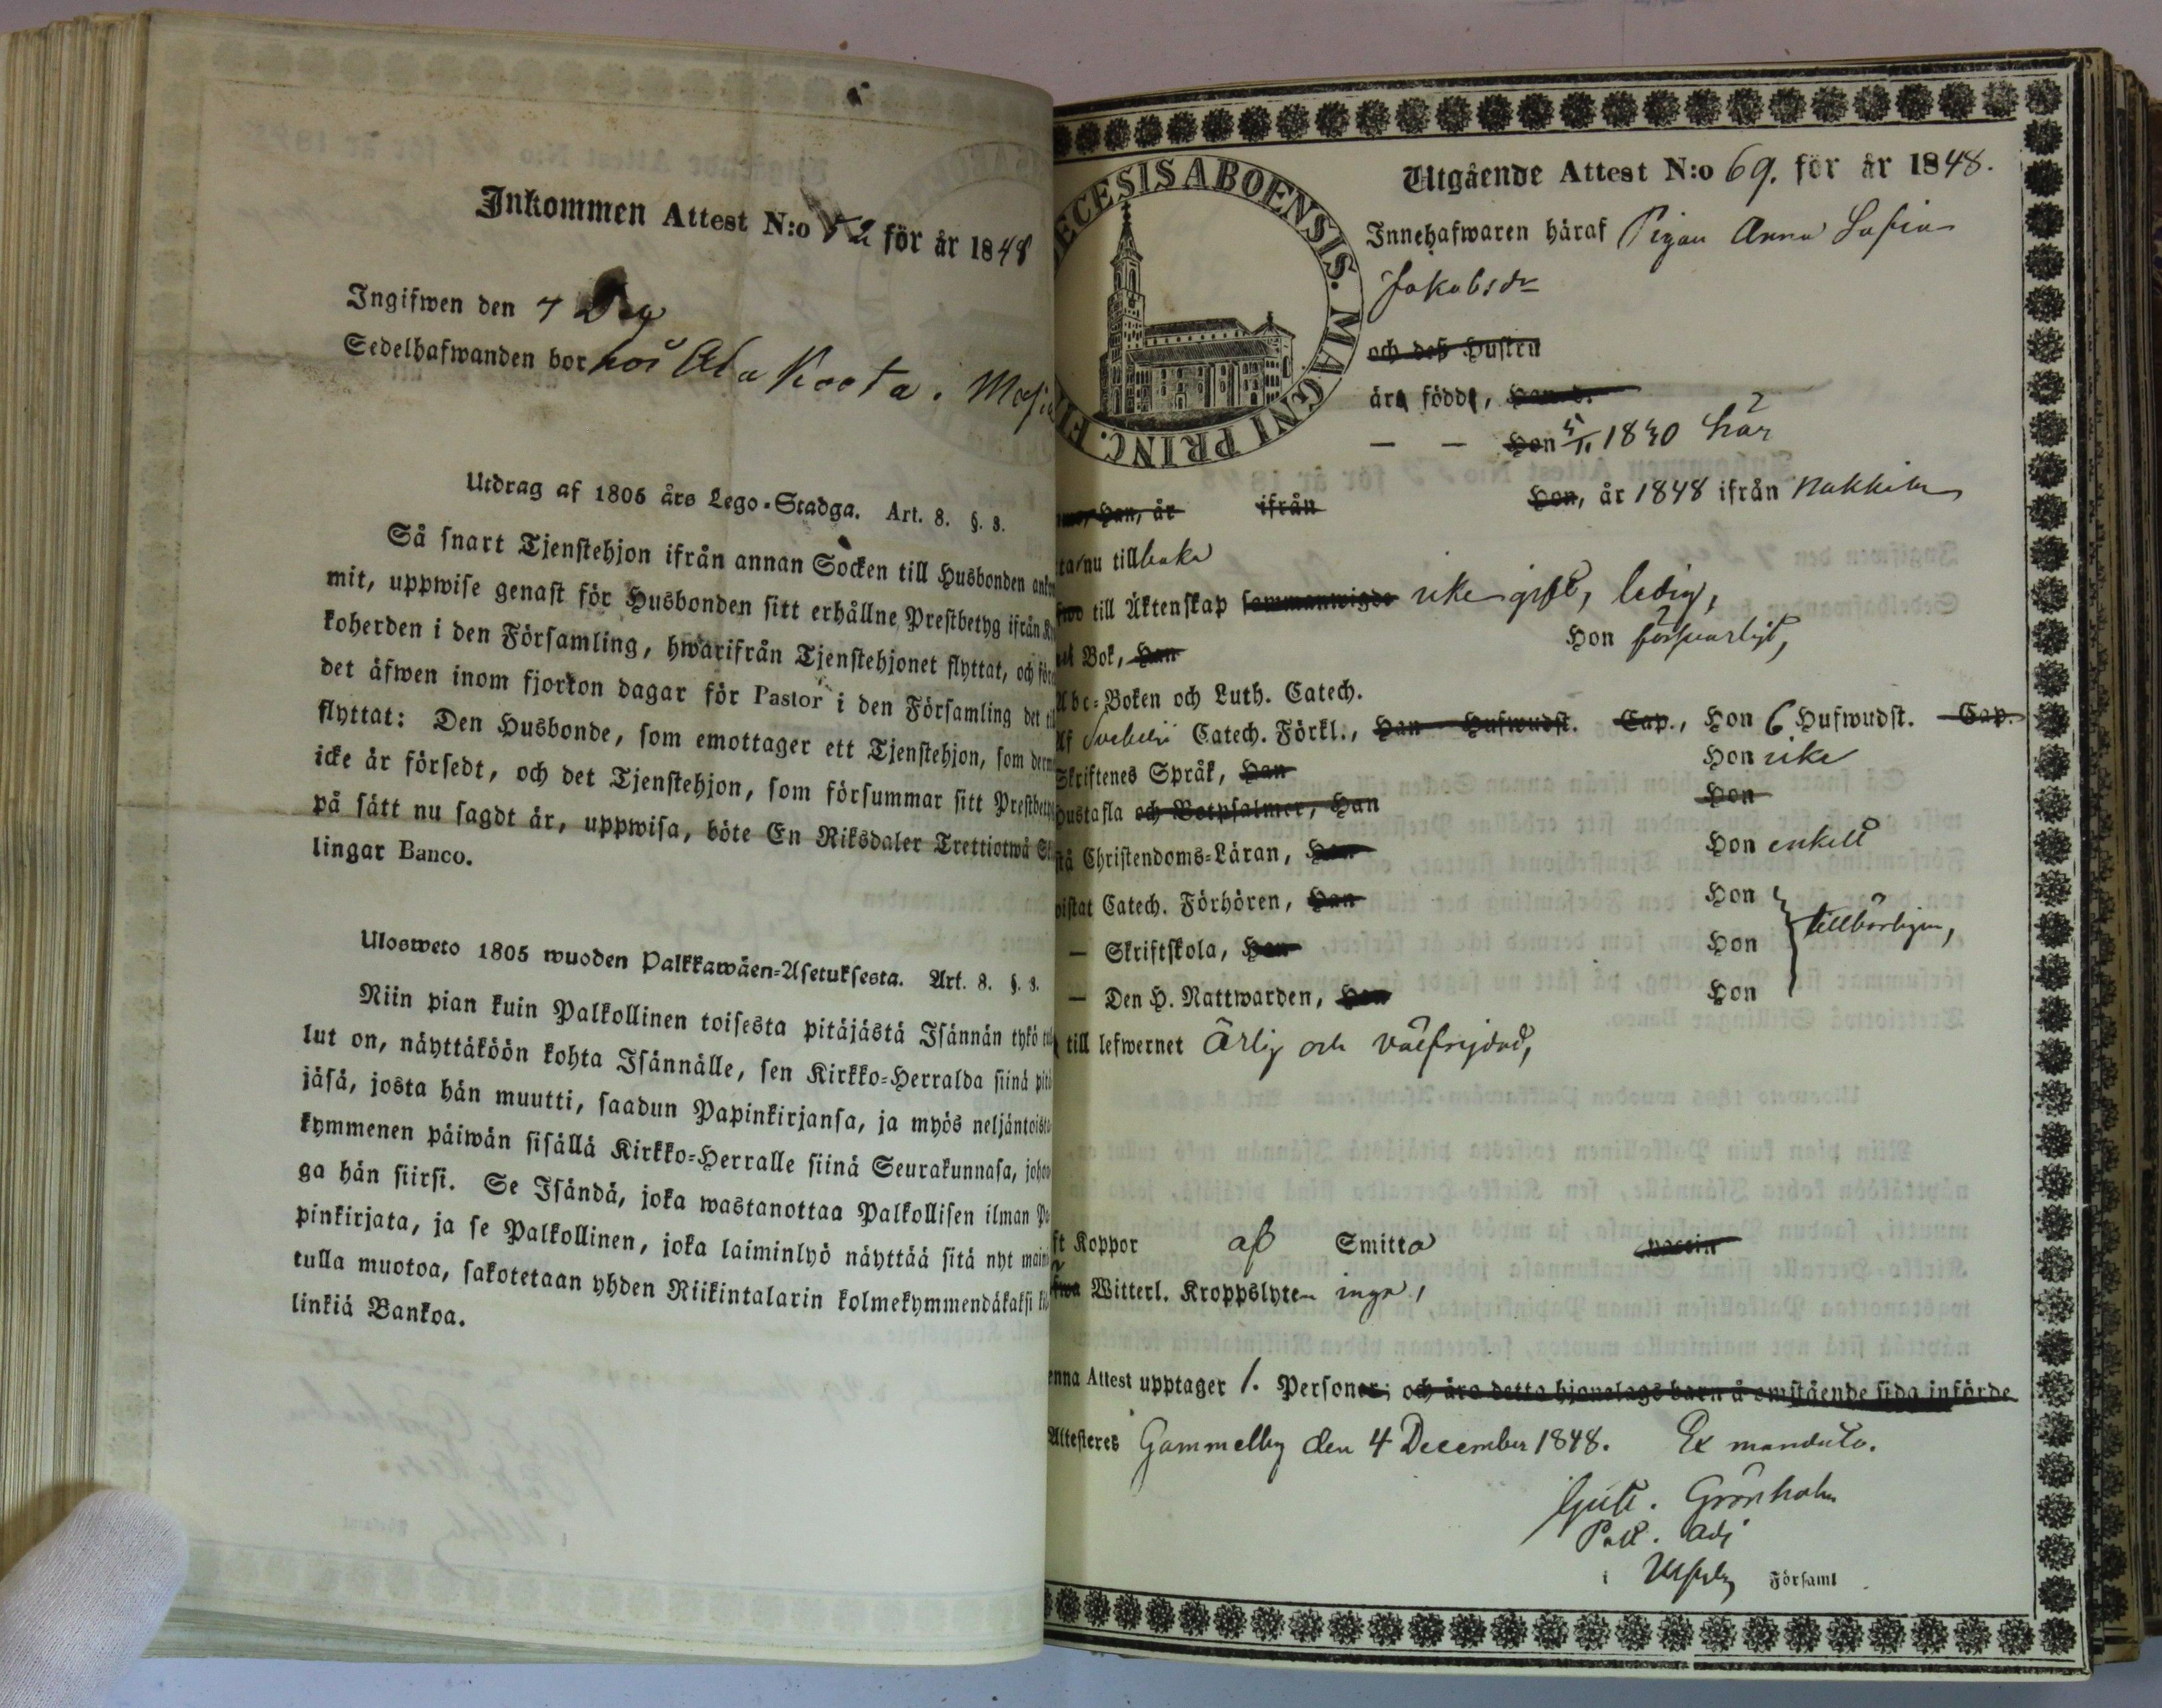 Inkommen Attest N:o 52 för år 1848
Ingifwen den 7 Dec
Sedelhafwanden bor hos Ala Koota i
Utdrag af 1805 års Lego-Stadga. Art. 8. §. 8.
Så snart Tjenstehjon ifrån annan Socken till Husbonden ankom
mit, uppwise genast för Husbonden sitt erhållne Prestbetyg ifrån Ky
koherden i den Församling, hwarifrån Tjenstehjonet flyttat, och före
det äfwen inom fjorton dagar för Pastor i den Församling det til
flyttat: Den Husbonde, som emottager ett Tjenstehjon, som derm
icke är försedt, och det Tjenstehjon, som försummar sitt Prestbetyg
på sätt nu sagdt är, uppwisa, böte En Riksdaler Trettiotwå Skil
lingar Banco.
Ulosweto 1805 wuoden Palkkawäen-Asetuksesta. Art. 8. §. 8.
Niin pian kuin Palkollinen toisesta pitäjästä Isännän tykö tul
lut on, näyttäköön kohta Isännälle, sen Kirkko-Herralda siinä pitä
jäsä, josta hän muutti, saadun Papinkirjansa, ja myös neljäntoista
kymmenen päiwän sisällä Kirkko-Herralle siinä Seurakunnasa, johon
ga hän siirsi. Se Isändä, joka wastanottaa Palkollisen ilman Pa
pinkirjata, ja se Palkollinen, joka laiminlyö näyttää sitä nyt maini
tulla muotoa, sakotetaan yhden Riikintalarin kolmekymmendäkaksi kil
linkiä Bankoa.
DIOECESIS ABOENSIS. MAGNI PRINC. FI
Utgående Attest N:o 69. för år 1848.
Innehafwaren häraf Pigan Anna Sofia
Jakobsdr
och deß Hustru
ära född, Han d.
— — Hon 5/11 1830 här
Han, år ifrån Hon, år 1848 ifrån Nakkila
ta nu tillbaka
fwo till Äktenskap sammanwigde icke gift, ledig,
i Bok, Han Hon förswarligt,
Abc-Boken och Luth. Catech.
Af Svebelii Catech. Förkl., Han Hufwudst. Cap., Hon 6 Hufwudst. Cap.
Skriftenes Språk, Han Hon icke
Hustafla och Botpsalmer, Han Hon
stå Christendoms-Läran, Han Hon enkelt
wistat Catech. Förhören, Han Hon
— Skriftskola, Han Hon tillbörligen,
— Den H. Nattwarden, Han Hon
till lefwernet Ärlig och välfrejdad,
ft Koppor af Smitta vaccin
fwa Witterl. Kroppslyten inga,
enna Attest upptager 1. Personer; och äro detta hjonelags barn å omstående sida införde
Attesteres Gammelby den 4 December 1848. Ex mandato.
Gust. Grönholm
Past. Adj
i Ulfsby Församl